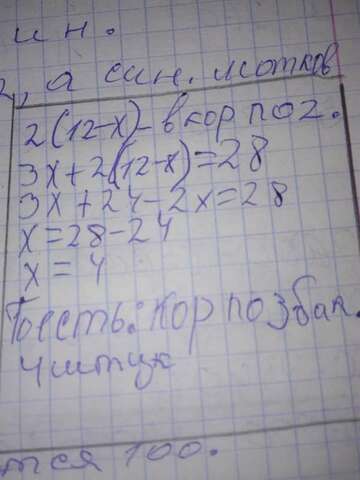 ин.
, а син. мотков
2(12-x)-вкор по 2.
3x+2(12-x)=28
3x+24-2x=28
x=28-24
x=4
Тоесть: кор по 3бал.
4штук
тся 100.